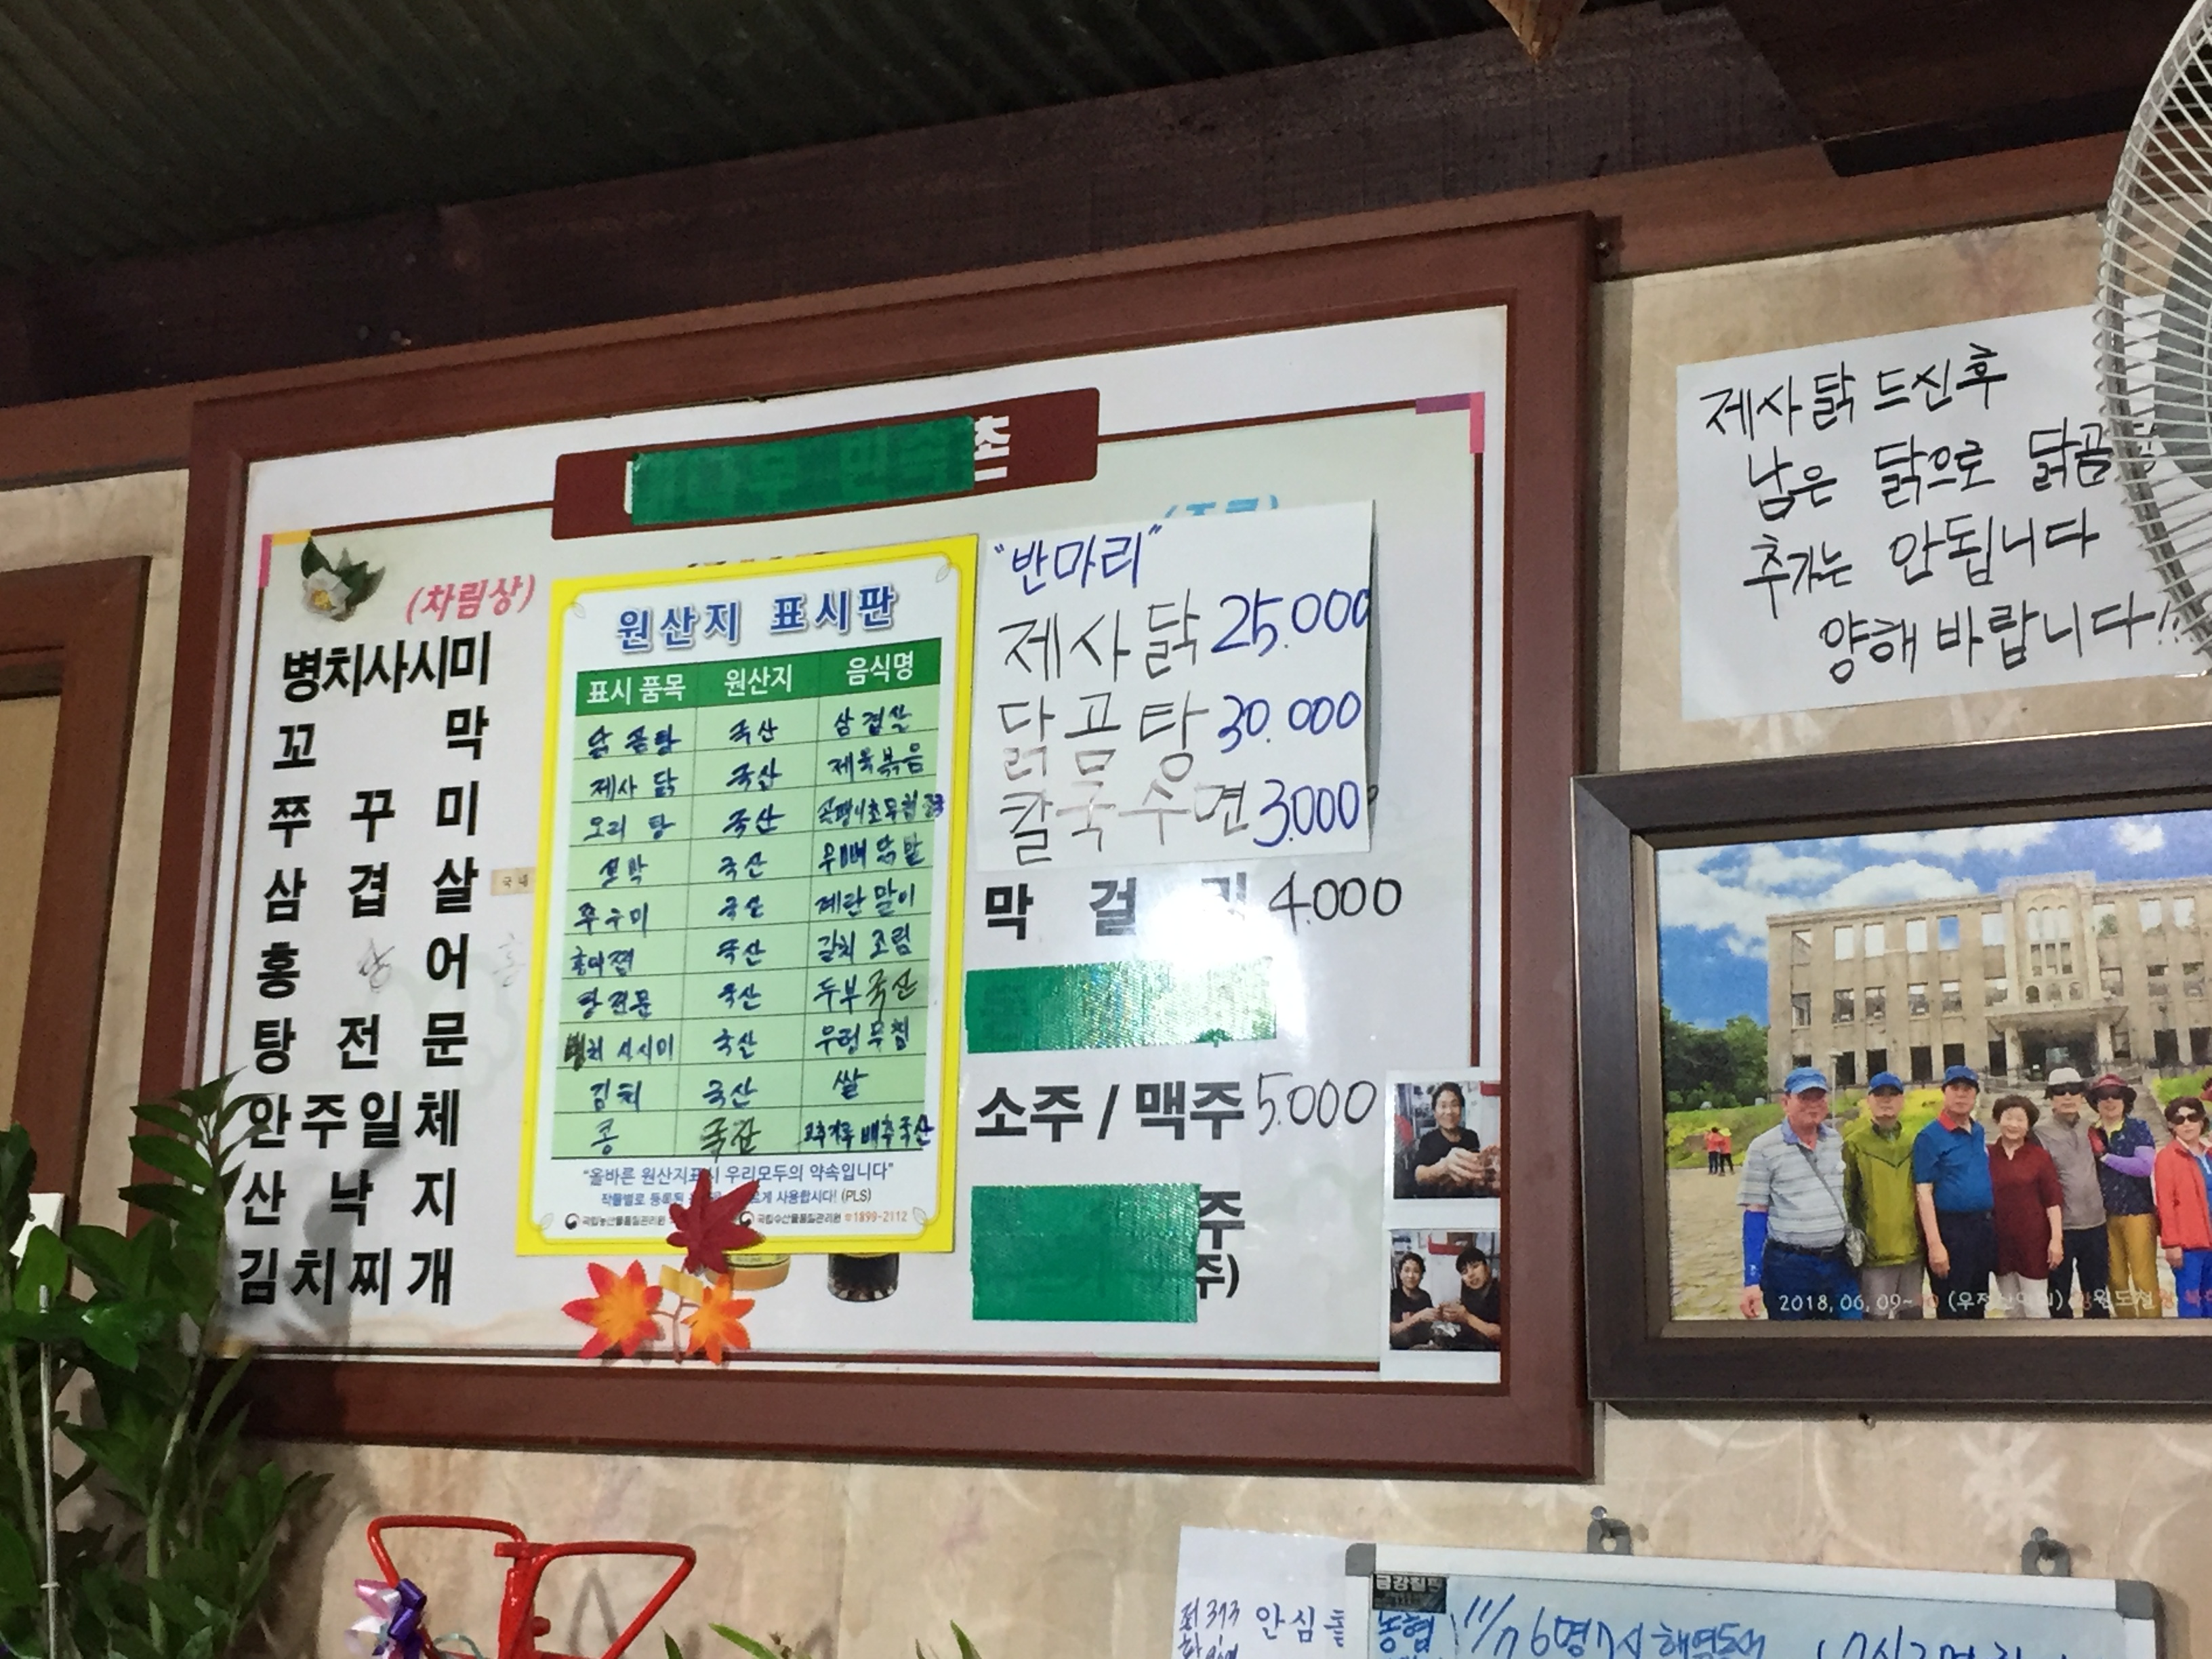 촌
(차림상)
병치사시미
꼬 막
쭈 꾸 미
삼 겹 살
홍 어
탕 전 문
안주일체
산 낙 지
김치찌개
원산지 표시판
표시 품목 원산지 음식명
닭 곰탕 국산 삼겹살
제사 닭 국산 제육볶음
오리 탕 국산
꼬막 국산 무뼈닭발
쭈꾸미 국산 계란말이
홍어전 국산 갈치 조림
탕전문 국산 두부 국산
병치 사시미 국산 우렁무침
김치 국산 쌀
콩 국산 고추가루 배추국산
"올바른 원산지표시 우리모두의 약속입니다"
작물별로 등록된 사용합시다! (PLS)
국립농산물품질관리원 국립수산물품질관리원 ☎1899-2112
"반마리"
제사닭 25.000
닭곰탕 30.000
칼국수면 3.000
막 걸 리 4.000
소주 / 맥주 5.000
주
주)
제사닭 드신후
남은 닭으로 닭곰
추가는 안됩니다
양해바랍니다!!
2018, 06, 09~
금강칠판
안심
농협 11/7 6명 7시